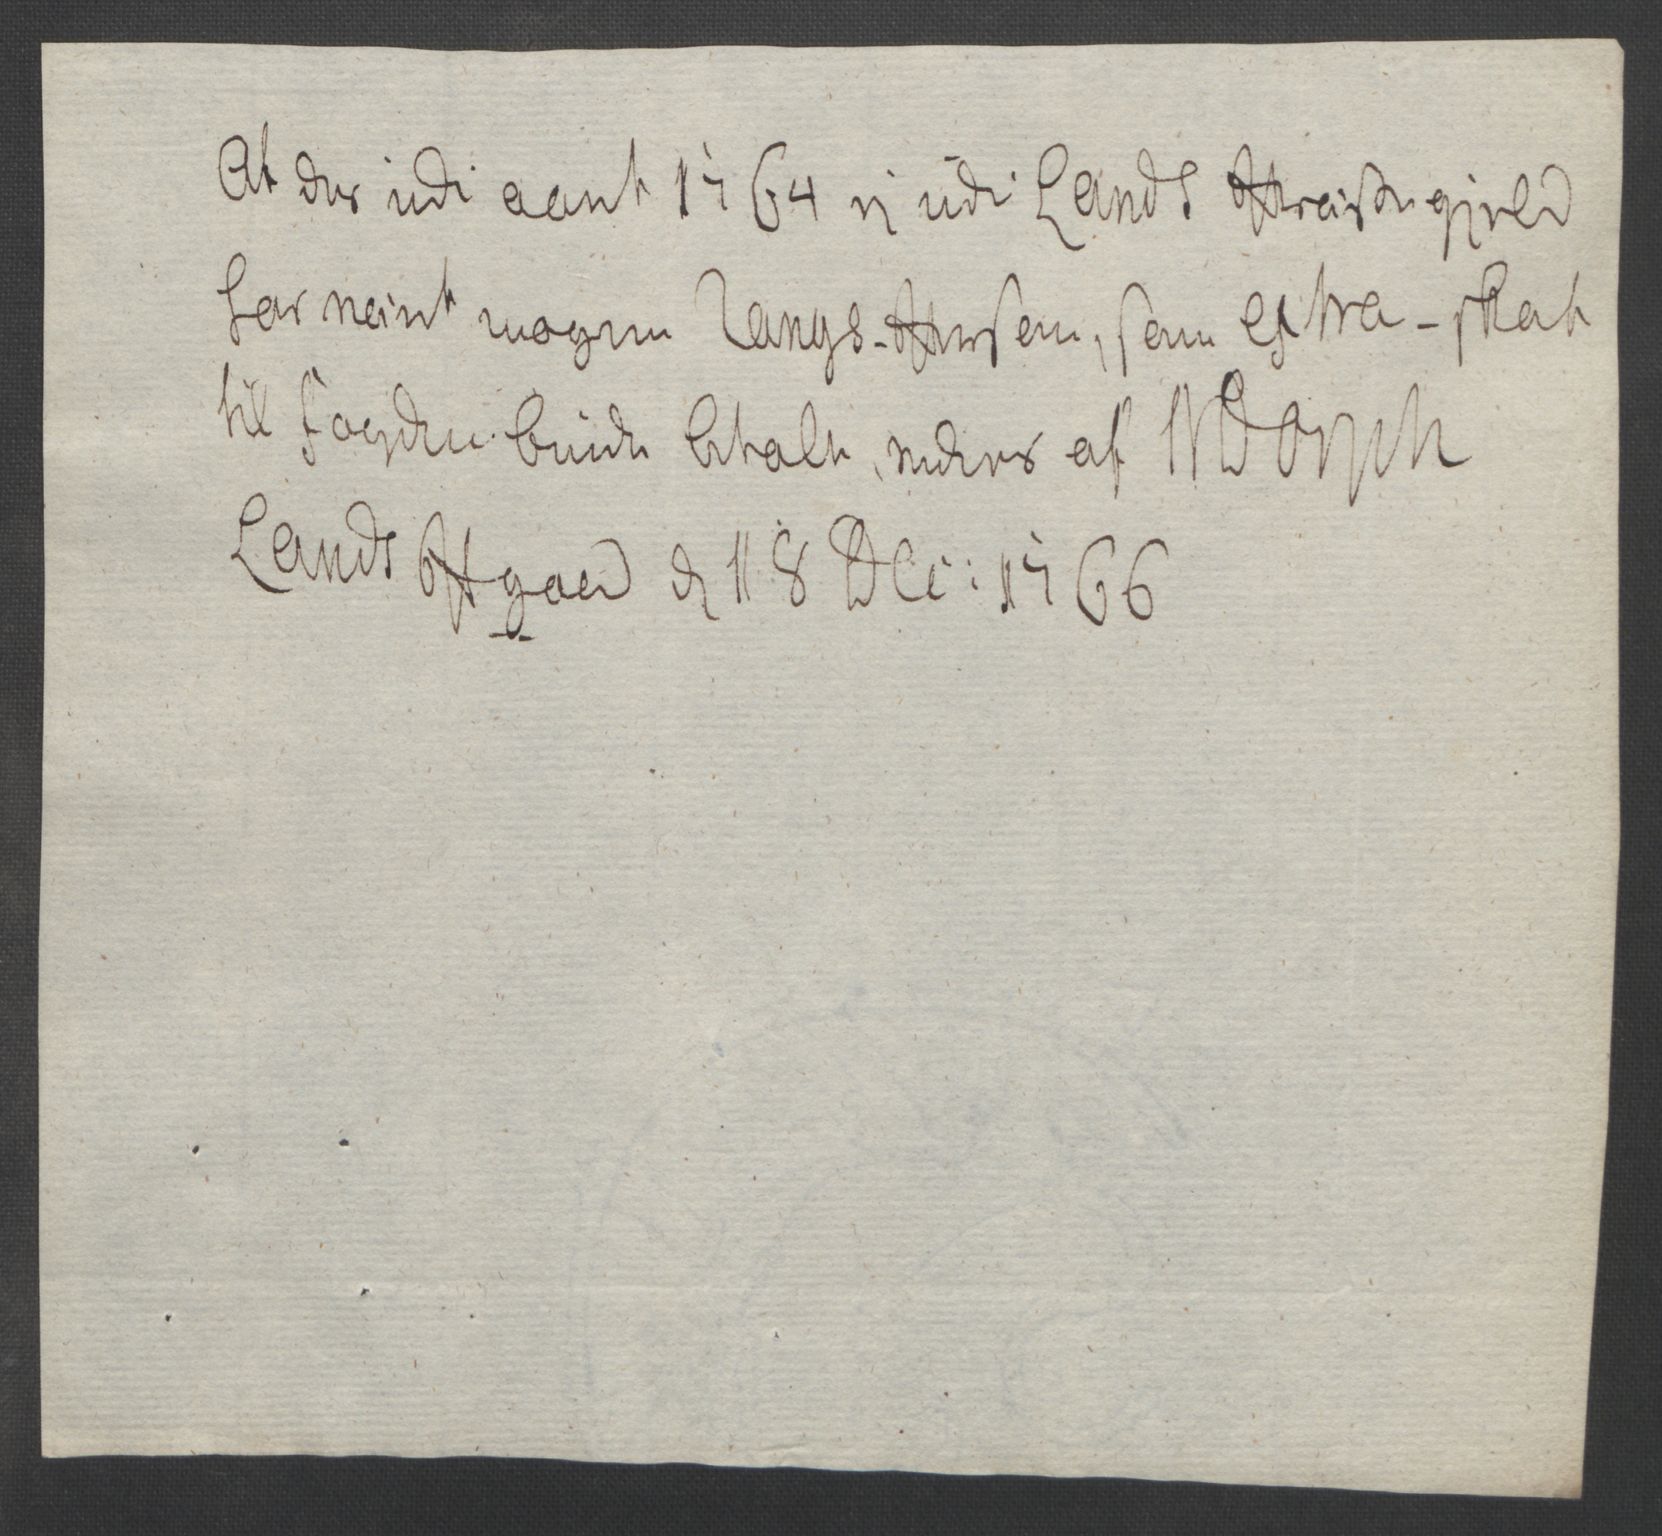 At der udi aaret 1764 ej udi Lands Præstegield
har været nogen Rangs-Persohn, som Extra-skat
til Fogden burde betale, attesteres af NDorph
Lands Præstgaard d 18 Dec: 1766